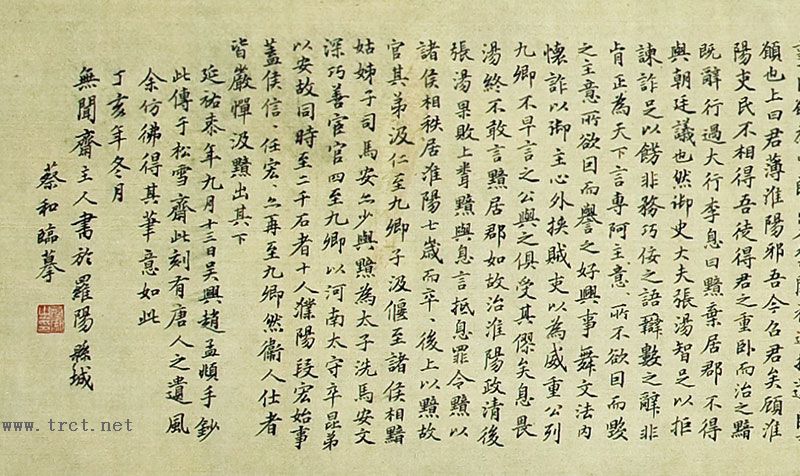 願也上曰君薄淮陽邪吾今召君矣顧淮
陽吏民不相得吾徒得君之重臥而治之黯
既辭行過大行李息曰黯棄居郡不得
與朝廷議也然御史大夫張湯智足以拒
諫詐足以飾非務巧佞之語辯數之辭非
肯正為天下言專阿主意、所不欲因而毀
之主意所欲因而譽之好興事舞文法內
懷詐以御主心外挾賊吏以為威重公列
九卿不早言之公與之俱受其僇矣息畏
湯終不敢言黯居郡如故治淮陽政清後
張湯果敗上聞黯與息言抵息罪令黯以
諸侯相秩居淮陽七歲而卒、後上以黯故
官其弟汲仁至九卿子汲偃至諸侯相黯
姑姊子司馬安亦少與黯為太子洗馬安文
深巧善宦官四至九卿以河南太守卒昆弟
以安故同時至二千石者十人濮陽段宏始事
蓋侯信、任宏、亦再至九卿然衞人仕者
皆嚴憚汲黯出其下
延祐柒年九月十三日吳興趙孟頫手鈔
此傳于松雪齋此刻有唐人之遺風
余仿彿得其筆意如此
丁亥年冬月
無聞齋主人書於羅陽縣城
蔡和臨摹
www.trct.net